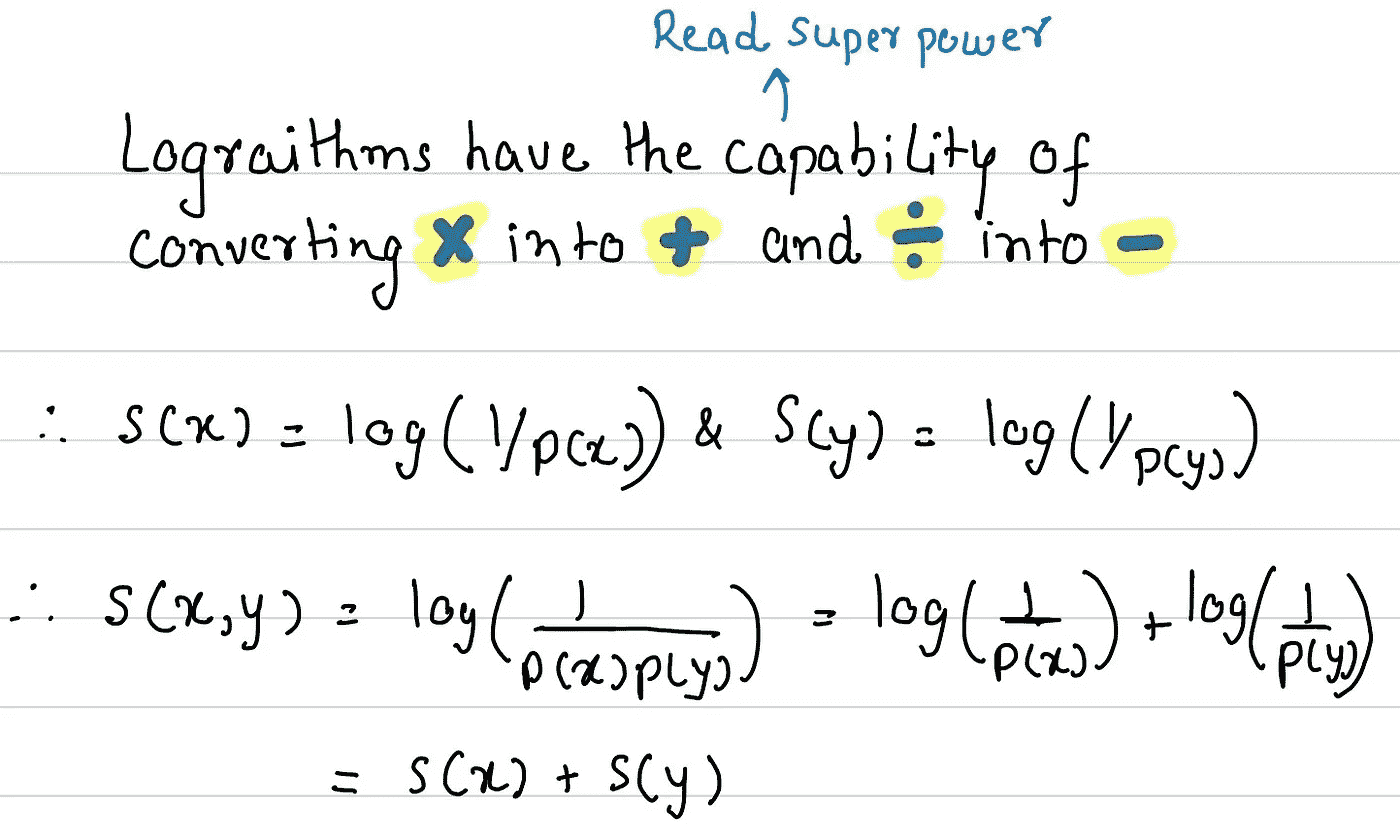 Read super power
↑
Lograithms have the capability of
converting × into + and ÷ into -
∴ S(x) = log(1/p(x)) & S(y) = log(1/p(y))
∴ S(x,y) = log(1/p(x)p(y)) = log(1/p(x)) + log(1/p(y))
= S(x) + S(y)